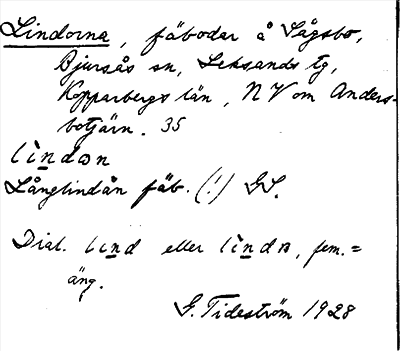 Lindorna, fäbodar å Sågsbo,
Bjursås sn, Leksands tg,
Kopparbergs län, NV om Anders-
botjärn. 35
lìndən
Långlindån fäb. (!) GS.
Dial. lind eller lìnda, fem. =
äng.
G. Tideström 1928